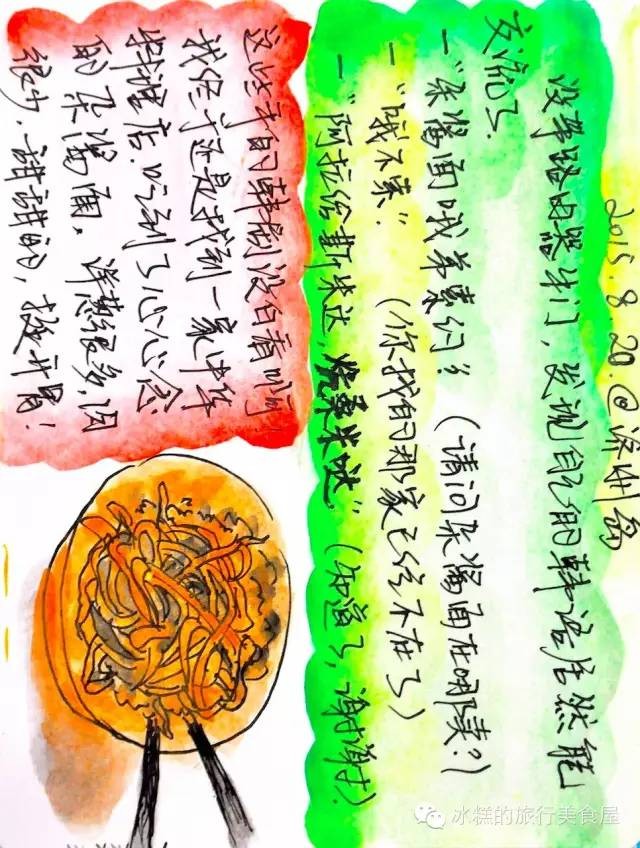 2015.8.20.@济州岛
没带路由器出门,发现自己的韩语居然能
交流了.
—“杂酱面哦弟素 ?(请问杂酱面在哪 ?)
—“哦不素”.(你找的那家已经不在了)
—“阿拉给斯米达, 桑米哒”.(知道了,谢谢).
这些年的韩剧没白看啊!
我终于还是找到一家中华
料理店.吃到了心心念
的杂酱面,洋葱很多,肉
很少.甜甜的,挺开胃!
冰糕的旅行美食屋